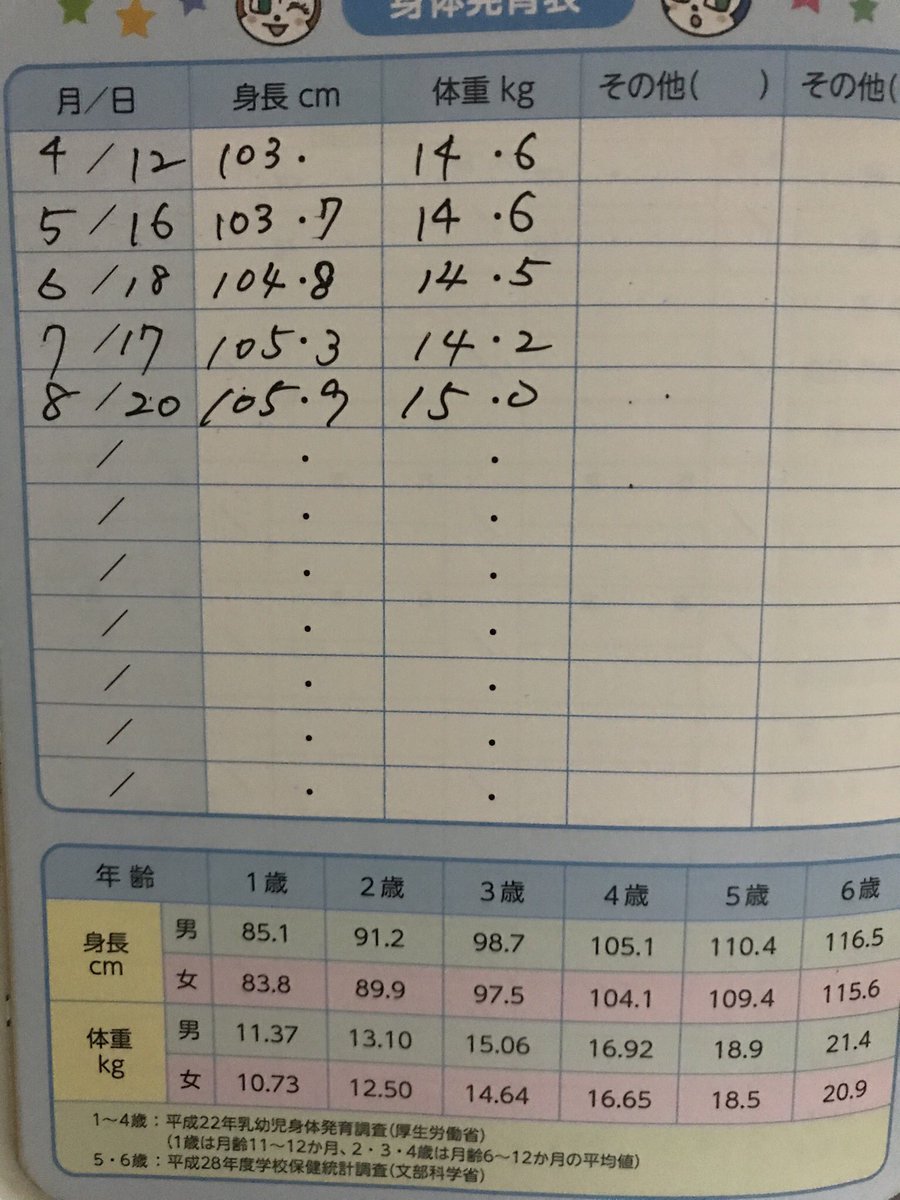 身体発育表
月/日 身長 cm 体重 kg その他( ) その他(
4/12 103. 14.6
5/16 103.7 14.6
6/18 104.8 14.5
7/17 105.3 14.2
8/20 105.9 15.0
/ . .
/ . .
/ . .
/ . .
/ . .
/ . .
/ . .
年齢 1歳 2歳 3歳 4歳 5歳 6歳
身長 cm 男 85.1 91.2 98.7 105.1 110.4 116.5
女 83.8 89.9 97.5 104.1 109.4 115.6
体重 kg 男 11.37 13.10 15.06 16.92 18.9 21.4
女 10.73 12.50 14.64 16.65 18.5 20.9
1~4歳:平成22年乳幼児身体発育調査(厚生労働省)
(1歳は月齢11~12か月、2・3・4歳は月齢6~12か月の平均値)
5・6歳:平成28年度学校保健統計調査(文部科学省)